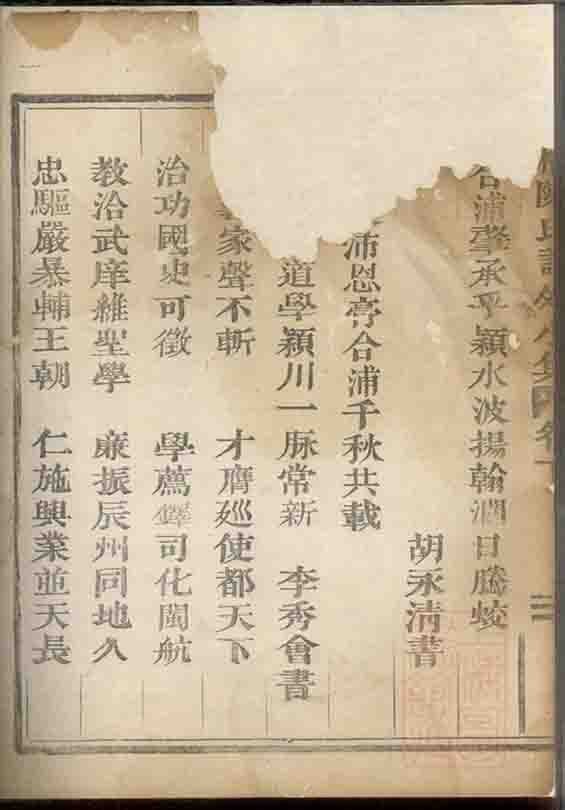 合浦肇承平穎水波揚翰潤日騰蛟
胡永清書
沛恩亭合浦千秋共載
道學穎川一脉常新 李秀會書
家聲不斬 才膺廵使都天下
治功國史可徵 學薦鐸司化閩航
教洽武庠維聖學 廉振辰州同地久
忠驅嚴暴輔王朝 仁施興業並天長